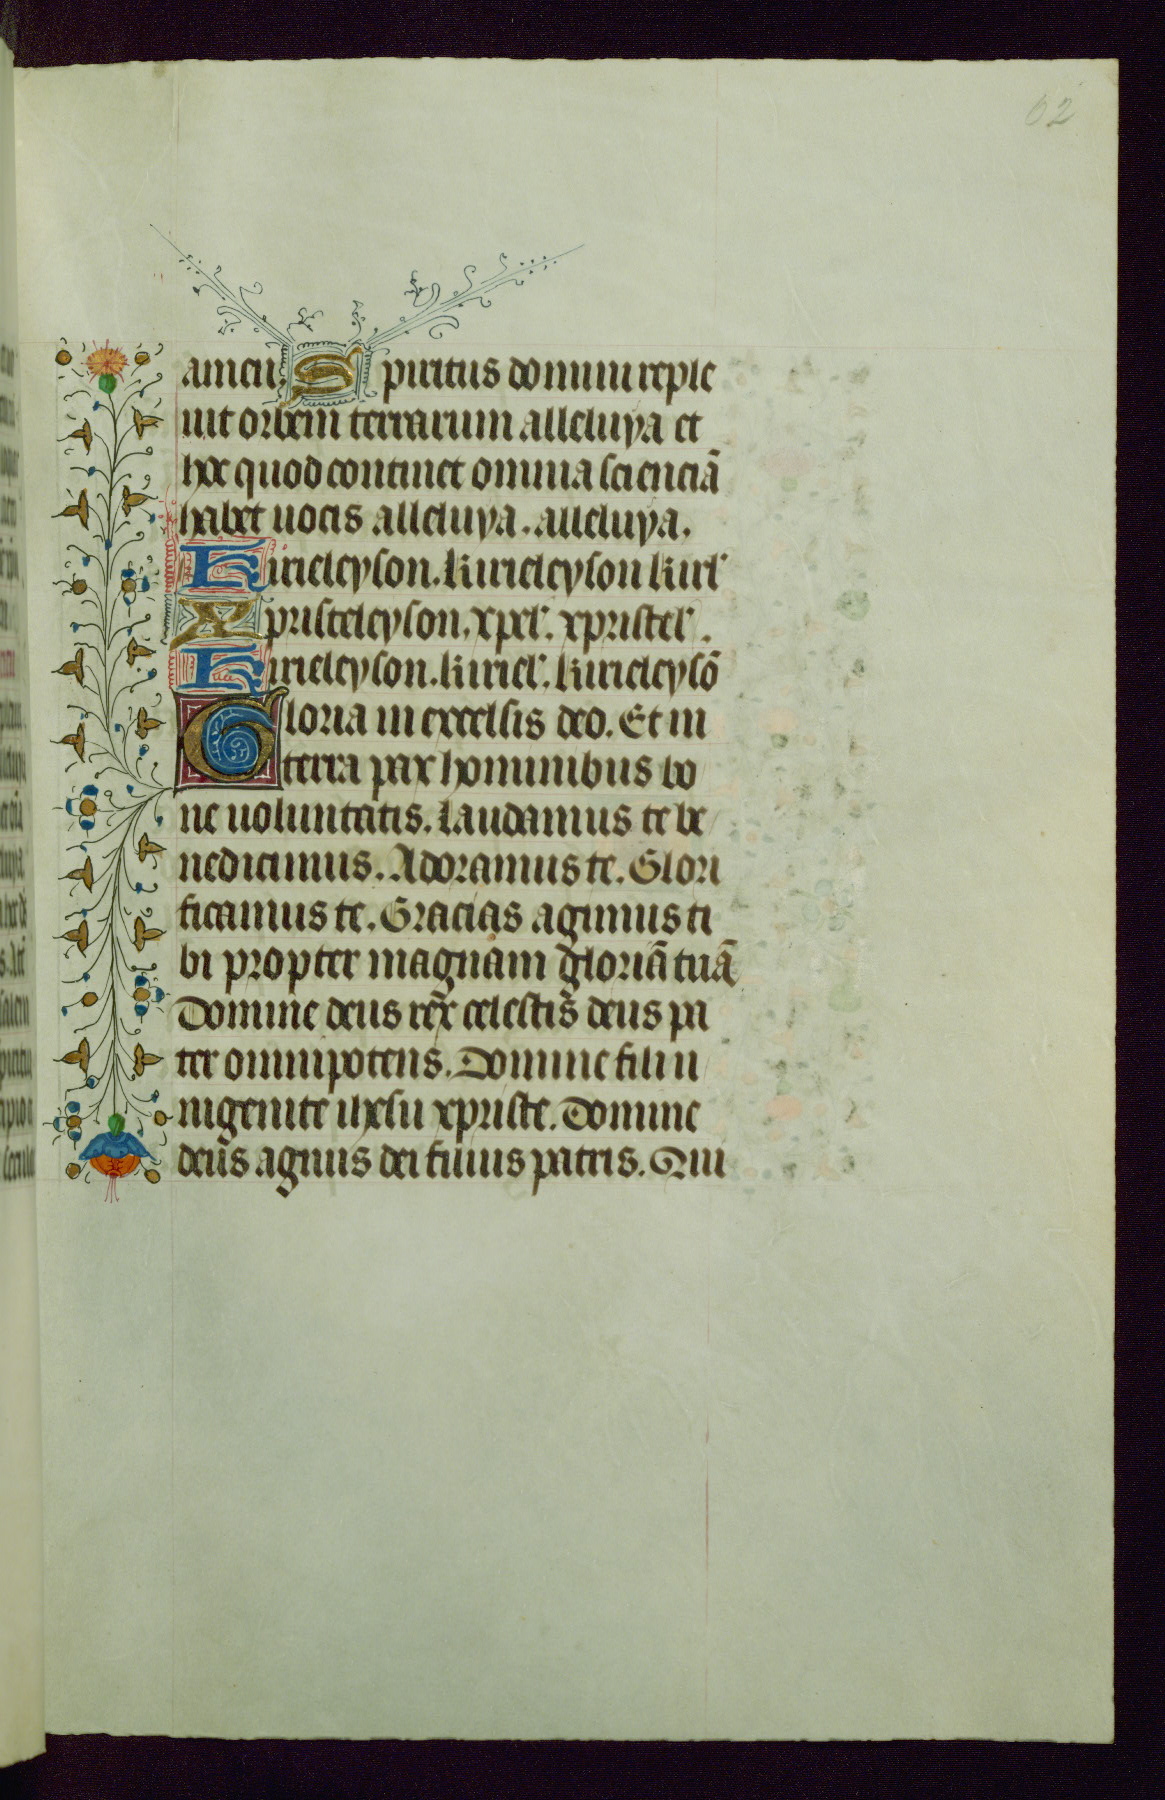 62
amen. Spiritus domini reple
uit orbem terrarum alleluya et
hoc quod continet omnia scienciā
habet uocis alleluya. alleluya.
Kirieleyson. kirieleyson kirl'
Xpristeleyson. xpel'. xpristel'.
Kirieleyson. kiriel'. kirieleysō
Gloria in excelsis deo. Et in
terra pax hominibus bo
ne uoluntatis. Laudamus te be
nedicimus. Adoramus te. Glori
ficamus te. Gracias agimus ti
bi propter magnam gloriā tuā
Domine deus rex celestis deus pa
ter omnipotens. Domine fili u
nigenite ihesu xpriste. Domine
deus agnus dei filius patris. Qui